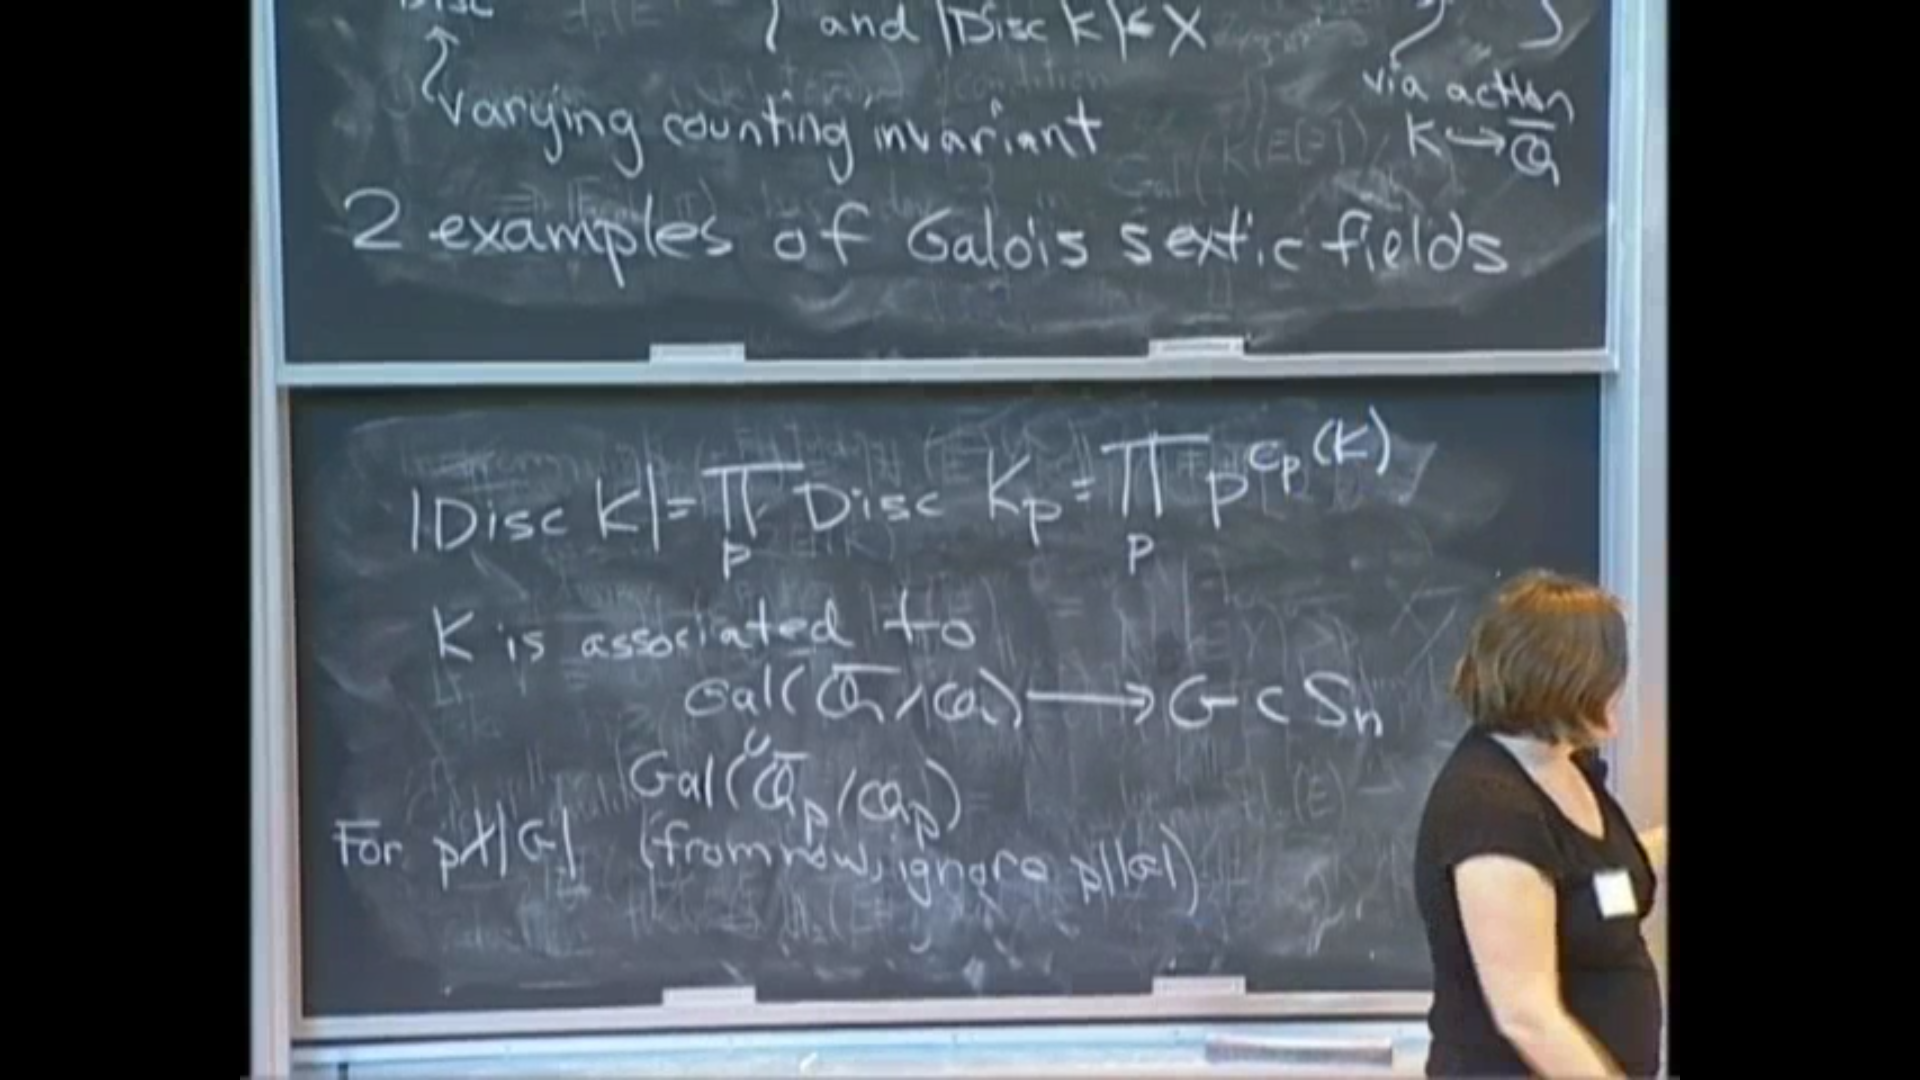 Disc } and |Disc K| < X
via action
varying counting invariant K ↪ Q̄
2 examples of Galois sextic fields
|Disc K| = ∏_p Disc K_p = ∏_p p^{c_p(K)}
K is associated to
Gal(Q̄/Q) ⟶ G ⊂ S_n
∪
Gal(Q̄_p/Q_p)
For p∤|G| (from now, ignore p||G|)